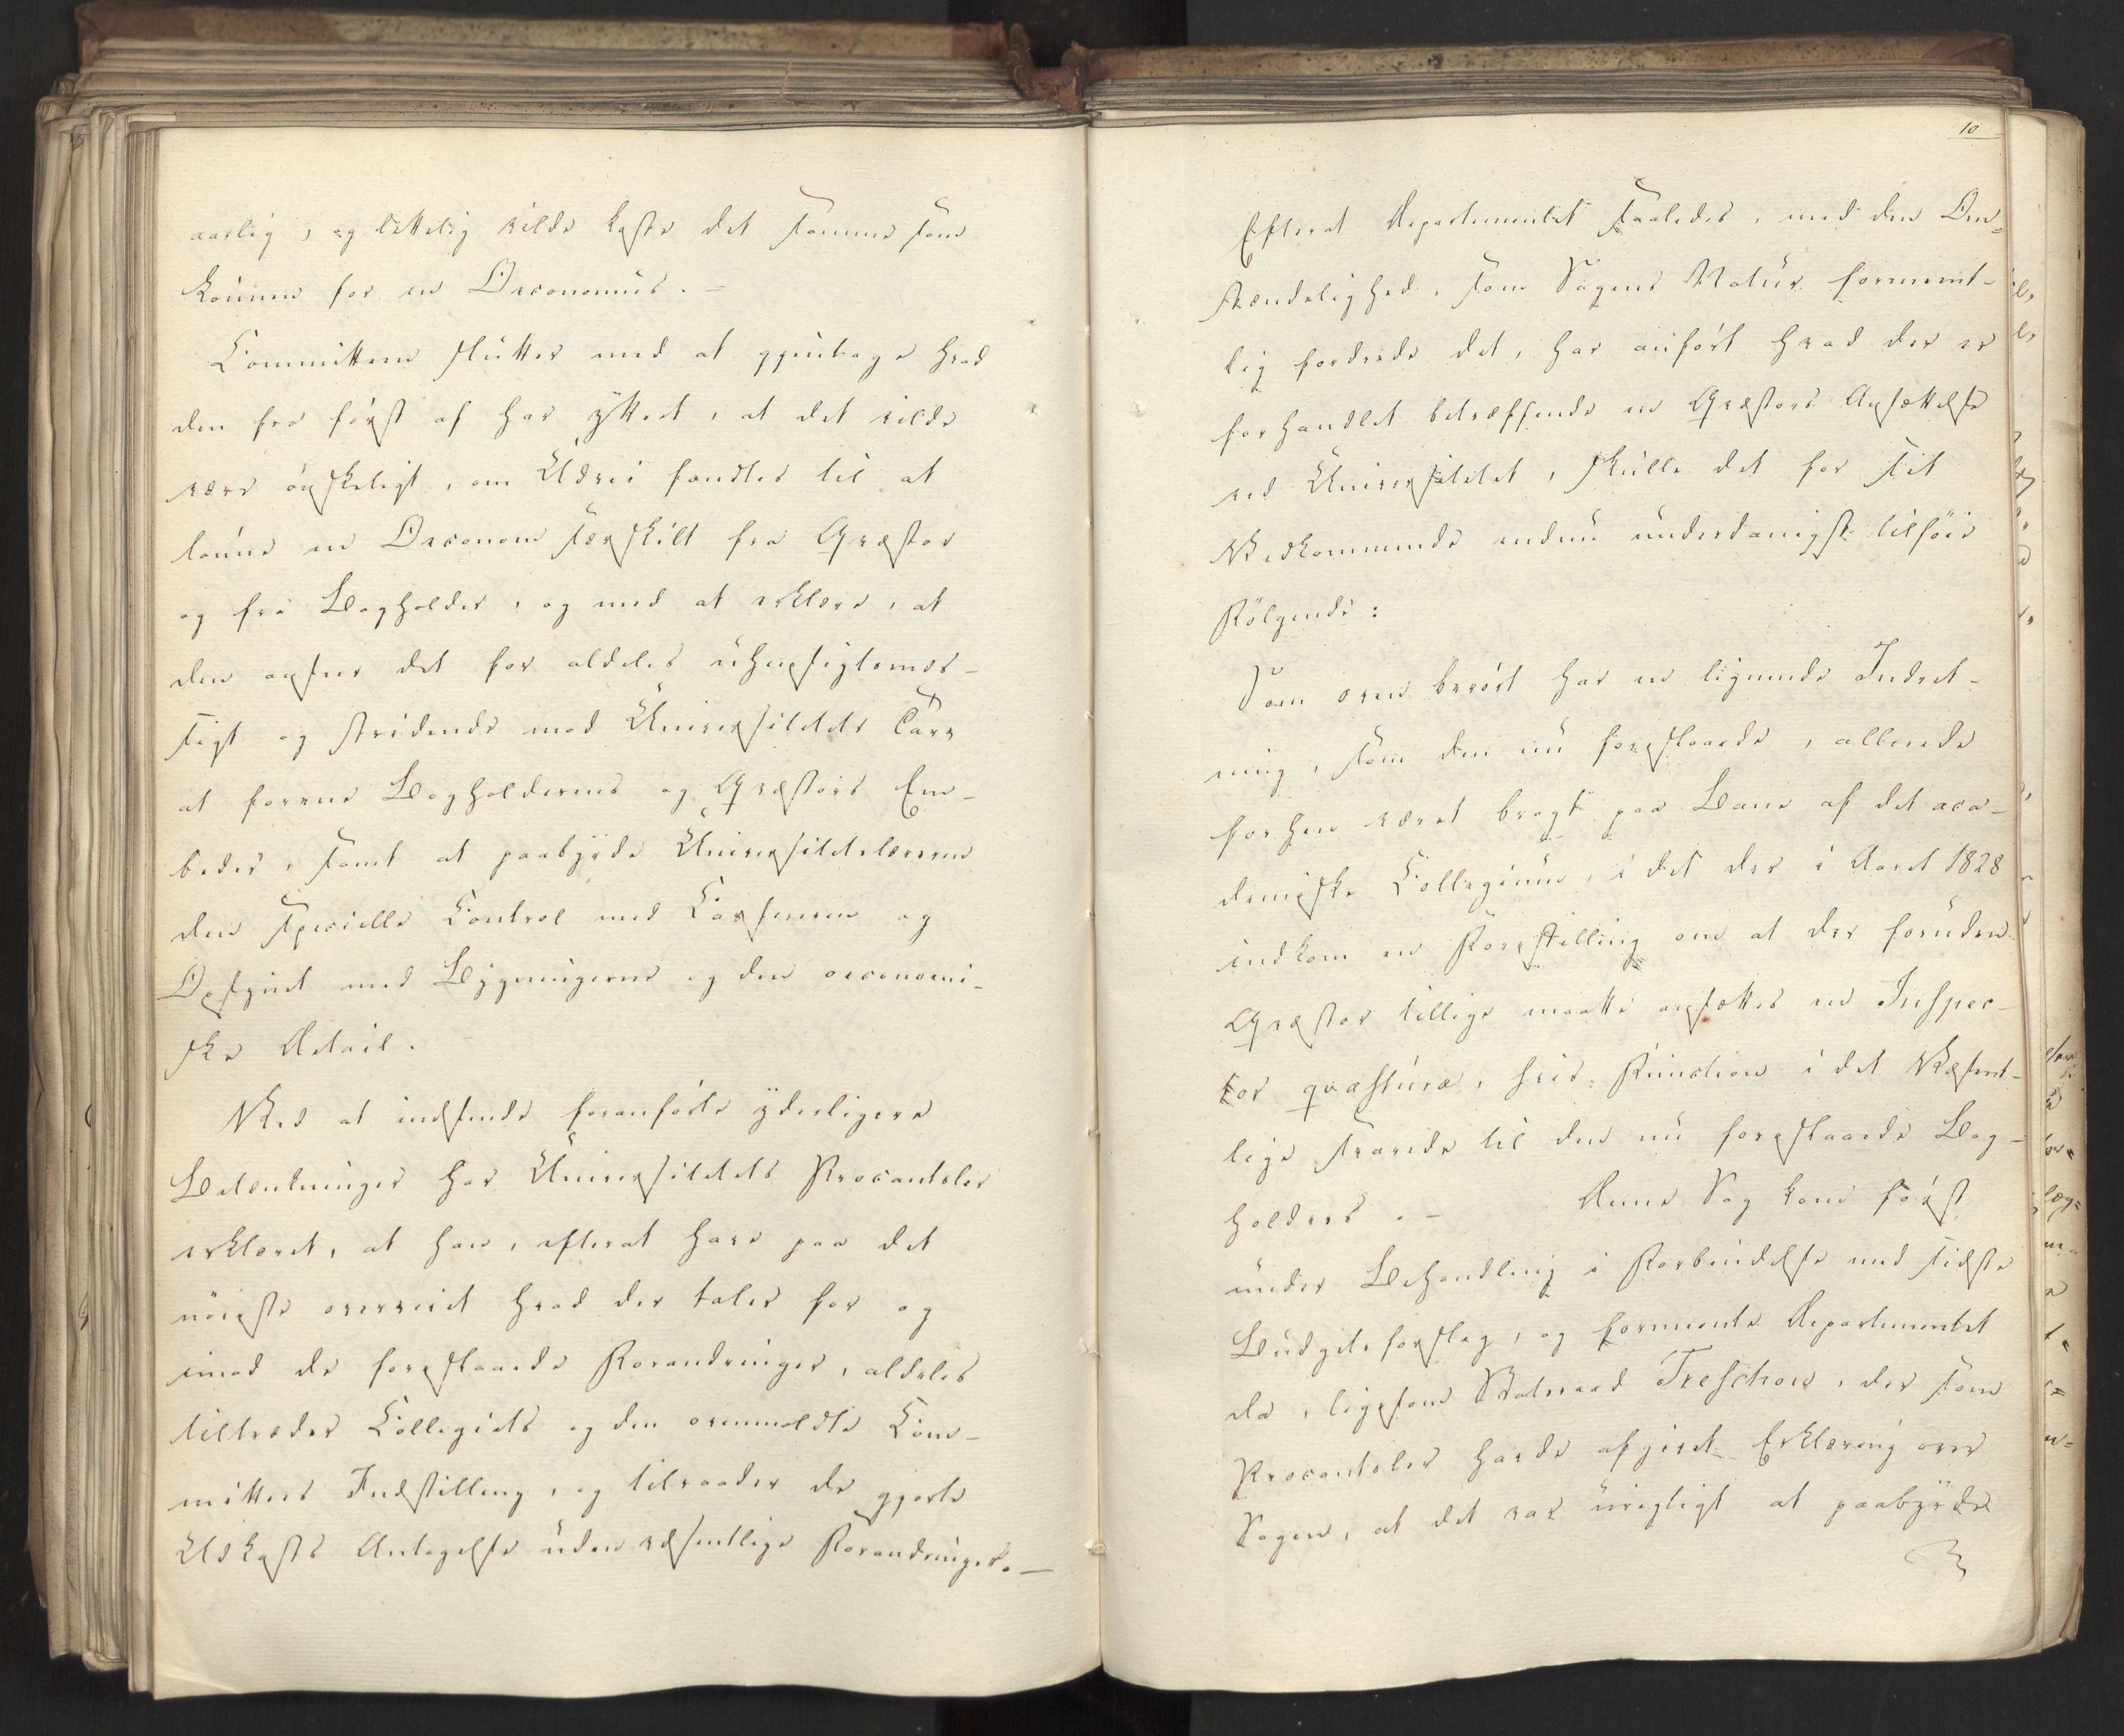 aarlig, og lettelig vilde koste det samme som
Lønnen for en Oeconomus. –
Committeen slutter med at gjentage hvad
den fra først af har yttret, at det vilde
være ønskeligt, om Udvei fandtes til at
lønne en Oeconom særskilt fra Qvæstor
og fra Bogholder, og med at erklære, at
den anseer det for aldeles uhensigtsmæs-
sigt og stridende mod Universitetets Tarv
at forene Bogholderens og Qvæstors Em-
beder, samt at paabyrde Universitetslærerne
den specielle Control med Cassereren og
Opsynet med Bygningerne og den oeconomi-
ske Detail. –
Ved at indsende foranførte yderligere
Betænkninger har Universitetets Procantsler
erklæret, at han, efterat have paa det
nøieste overveiet hvad der taler for og
imod de foreslaaede Forandringer, aldeles
tiltræder Collegiets og den ovenmeldte Com-
mittees Indstilling, og tilraader de gjorte
Udkasts Antagelse uden væsentlige Forandringer. –
10
Efterat Departementet saaledes, med den Om=
stændelighed, som Sagens Natur forment-
lig fordrede det, har anført hvad der er
forhandlet betræffende en Qvæstors Ansættelse
ved Universitetet, skulle det for sit
Vedkommende endnu underdanigst tilføie
Følgende:
Som oven berørt har en lignende Indret-
ning, som den nu foreslaaede, allerede
forhen været bragt paa Bane af det aca-
demiske Collegium, i det der i Aaret 1828
indkom en Forestilling om at der foruden
Qvæstor tillige maatte ansættes en Inspec-
tor qvæsturæ, hvis Function i det Væsent-
lige svarede til den nu foreslaaede Bog-
holders. – Denne Sag kom først
under Behandling i Forbindelse med sidste
Budgetsforslag, og formeente Departementet
da, ligesom Statsraad Treschow, der som
Procantsler havde afgivet Erklæring over
Sagen, at det var urigtigt at paabyrde